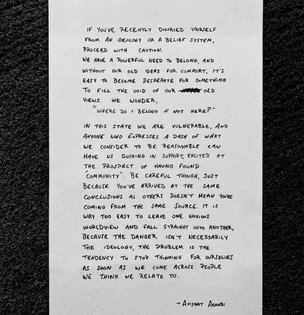 IF YOU'VE RECENTLY DIVORCED YOURSELF
FROM AN IDEOLOGY OR A BELIEF SYSTEM,
PROCEED WITH CAUTION.
WE HAVE A POWERFUL NEED TO BELONG, AND
WITHOUT OUR OLD IDEAS FOR COMFORT, IT'S
EASY TO BECOME DESPERATE FOR SOMETHING
TO FILL THE VOID OF OUR OLD
VIEWS. WE WONDER,
"WHERE DO I BELONG IF NOT HERE?"
IN THIS STATE WE ARE VULNERABLE, AND
ANYONE WHO EXPRESSES A DASH OF WHAT
WE CONSIDER TO BE REASONABLE CAN
HAVE US GUSHING IN SUPPORT, EXCITED AT
THE PROSPECT OF HAVING FOUND
'COMMUNITY'. BE CAREFUL THOUGH, JUST
BECAUSE YOU'VE ARRIVED AT THE SAME
CONCLUSIONS AS OTHERS DOESN'T MEAN YOU'RE
COMING FROM THE SAME SOURCE. IT IS
WAY TOO EASY TO LEAVE ONE NOXIOUS
WORLDVIEW AND FALL STRAIGHT INTO ANOTHER,
BECAUSE THE DANGER ISN'T NECESSARILY
THE IDEOLOGY, THE PROBLEM IS THE
TENDENCY TO STOP THINKING FOR OURSELVES
AS SOON AS WE COME ACROSS PEOPLE
WE THINK WE RELATE TO.
- AYISHAT AKANBI